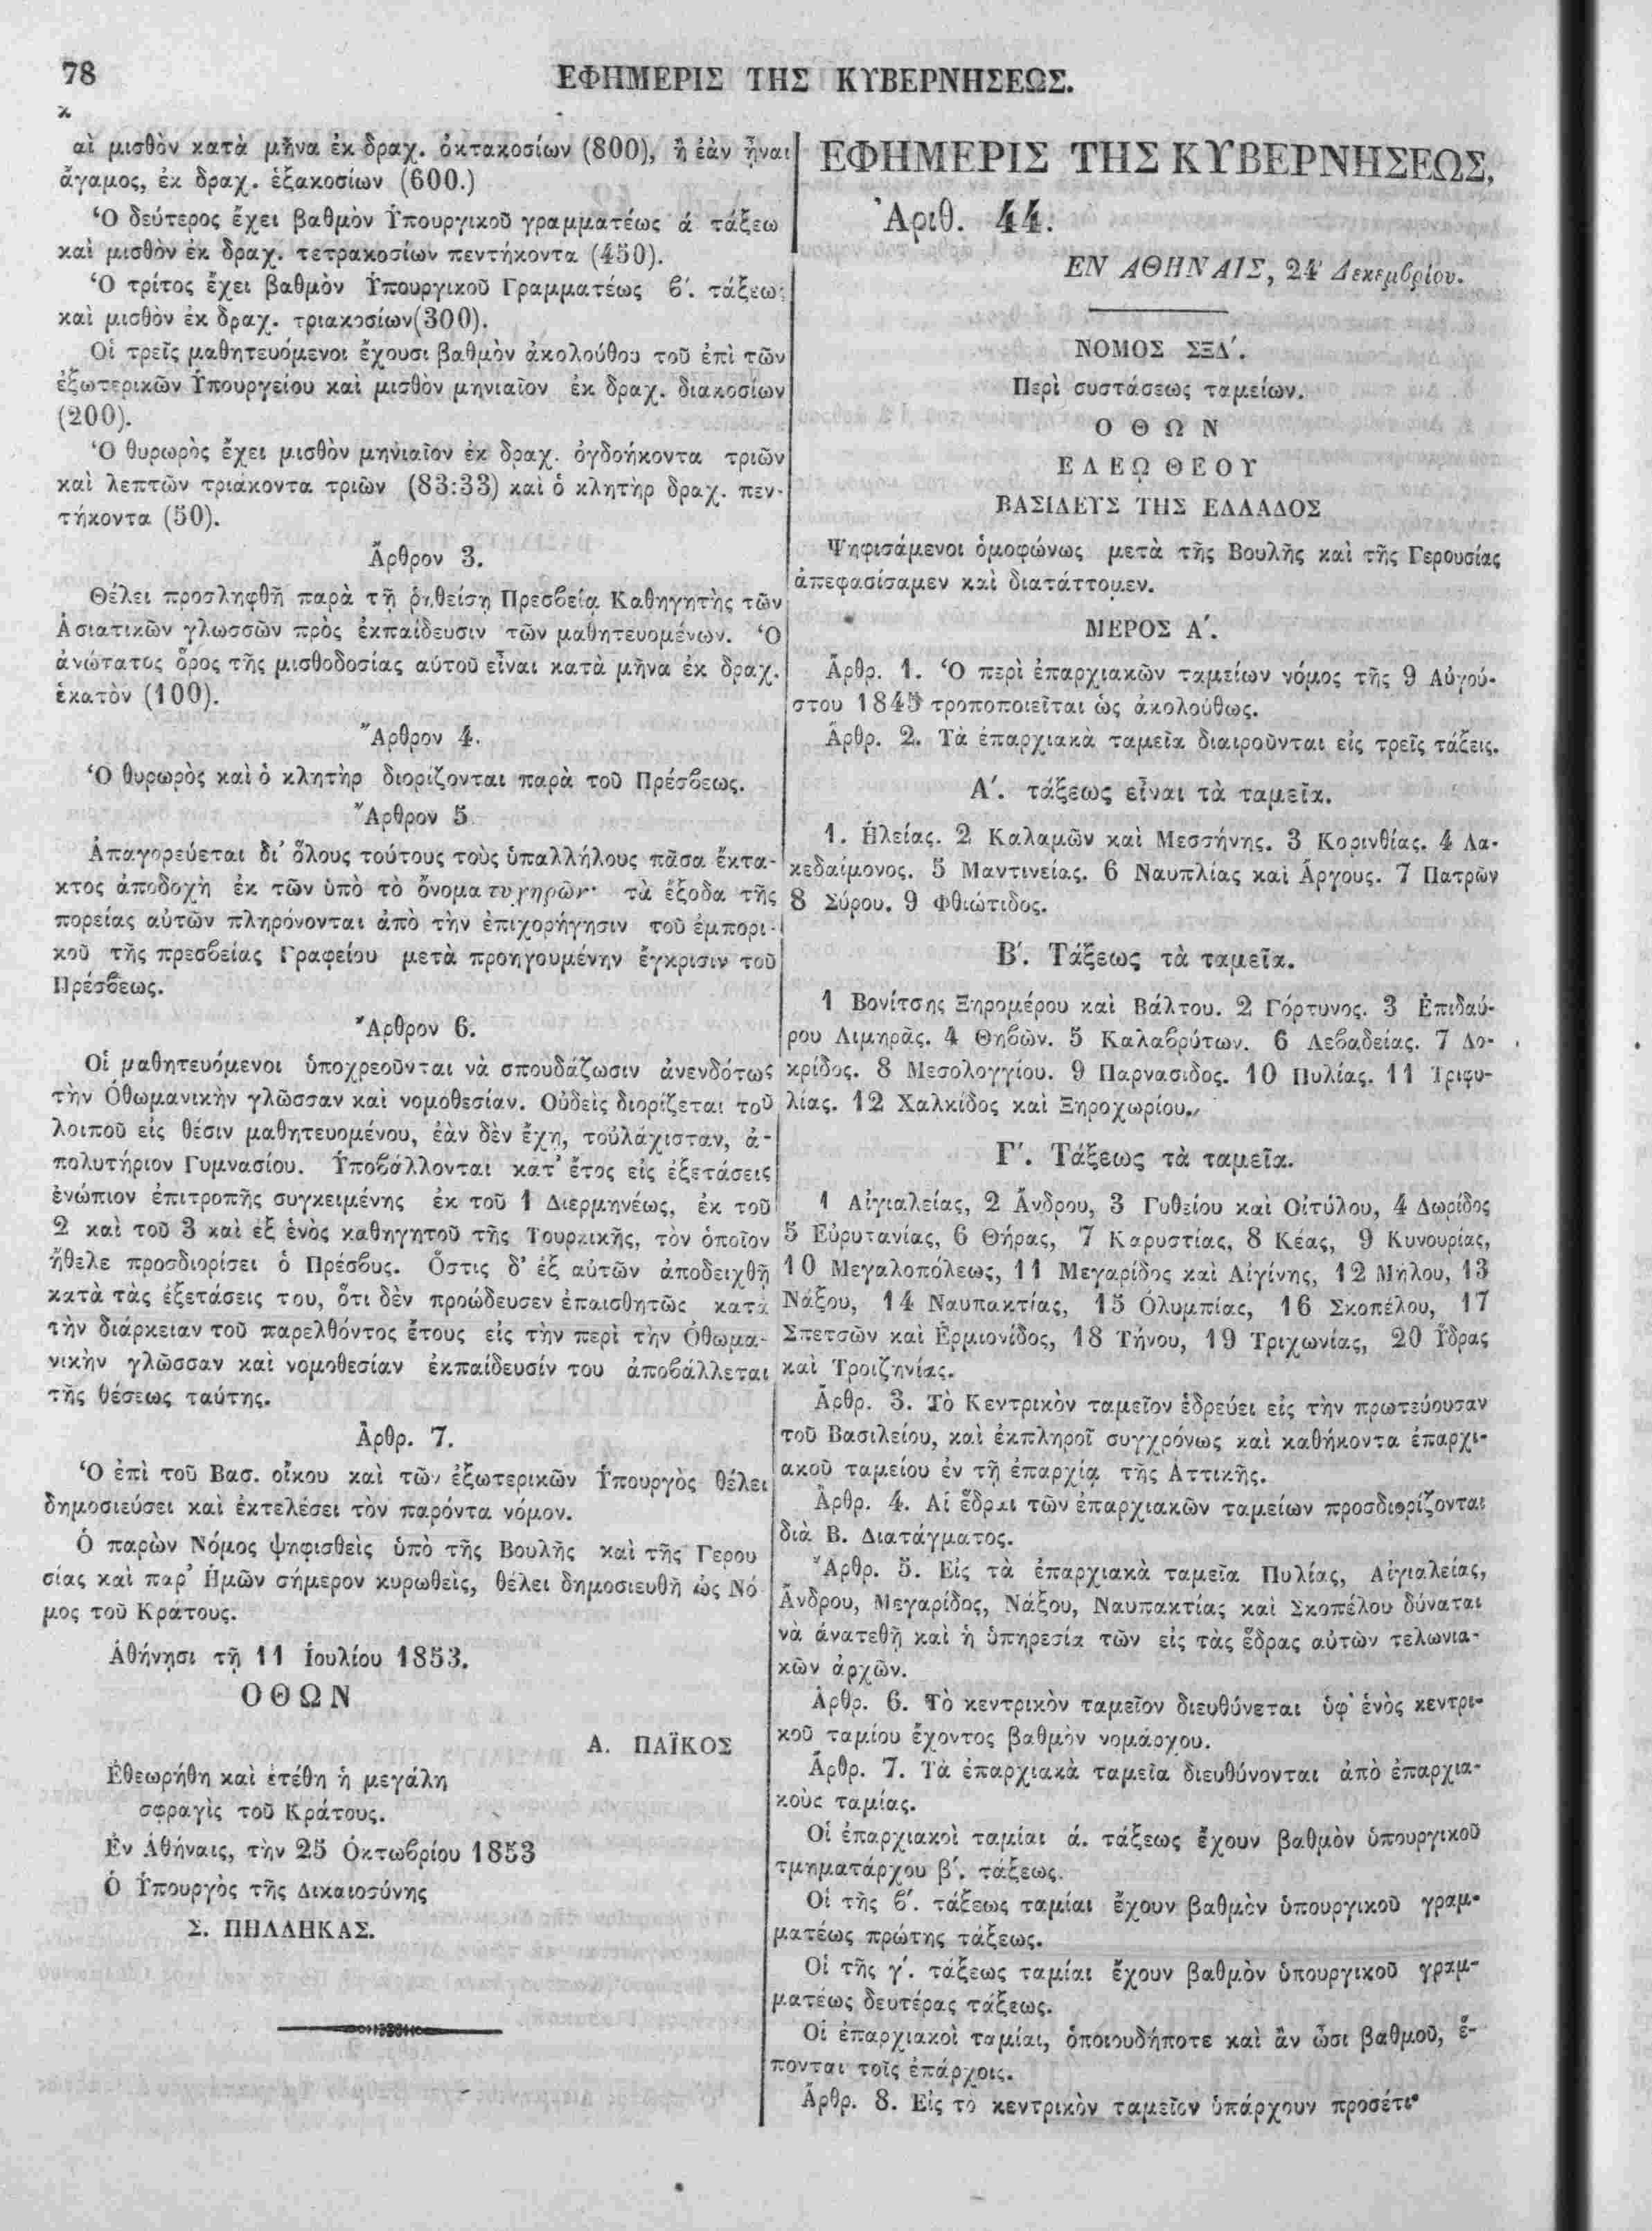 78
ΕΦΗΜΕΡΙΣ ΤΗΣ ΚΥΒΕΡΝΗΣΕΩΣ.
κ
αὶ μισθὸν κατὰ μῆνα ἐκ δραχ. ὀκτακοσίων (800), ἢ ἐὰν ᾖναι
ἄγαμος, ἐκ δραχ. ἑξακοσίων (600.)
Ὁ δεύτερος ἔχει βαθμὸν Ὑπουργικοῦ γραμματέως ά τάξεω
καὶ μισθὸν ἐκ δραχ. τετρακοσίων πεντήκοντα (450).
Ὁ τρίτος ἔχει βαθμὸν Ὑπουργικοῦ Γραμματέως β΄. τάξεως
καὶ μισθὸν ἐκ δραχ. τριακοσίων(300).
Οἱ τρεῖς μαθητευόμενοι ἔχουσι βαθμὸν ἀκολούθου τοῦ ἐπὶ τῶν
ἐξωτερικῶν Ὑπουργείου καὶ μισθὸν μηνιαῖον ἐκ δραχ. διακοσίων
(200).
Ὁ θυρωρὸς ἔχει μισθὸν μηνιαῖον ἐκ δραχ. ὀγδοήκοντα τριῶν
καὶ λεπτῶν τριάκοντα τριῶν (83:33) καὶ ὁ κλητὴρ δραχ. πεν-
τήκοντα (50).
Ἄρθρον 3.
Θέλει προσληφθῆ παρὰ τῇ ῥηθείσῃ Πρεσβείᾳ Καθηγητὴς τῶν
Ἀσιατικῶν γλωσσῶν πρὸς ἐκπαίδευσιν τῶν μαθητευομένων. Ὁ
ἀνώτατος ὅρος τῆς μισθοδοσίας αὐτοῦ εἶναι κατὰ μῆνα ἐκ δραχ.
ἑκατὸν (100).
Ἄρθρον 4.
Ὁ θυρωρὸς καὶ ὁ κλητὴρ διορίζονται παρὰ τοῦ Πρέσβεως.
Ἄρθρον 5.
Ἀπαγορεύεται δι' ὅλους τούτους τοὺς ὑπαλλήλους πᾶσα ἔκτα-
κτος ἀποδοχὴ ἐκ τῶν ὑπὸ τὸ ὄνομα τυχηρῶν· τὰ ἔξοδα τῆς
πορείας αὐτῶν πληρόνονται ἀπὸ τὴν ἐπιχορήγησιν τοῦ ἐμπορι-
κοῦ τῆς πρεσβείας Γραφείου μετὰ προηγουμένην ἔγκρισιν τοῦ
Πρέσβεως.
Ἄρθρον 6.
Οἱ μαθητευόμενοι ὑποχρεοῦνται νὰ σπουδάζωσιν ἀνενδότως
τὴν Ὀθωμανικὴν γλῶσσαν καὶ νομοθεσίαν. Οὐδεὶς διορίζεται τοῦ
λοιποῦ εἰς θέσιν μαθητευομένου, ἐὰν δὲν ἔχῃ, τοὐλάχισταν, ἀ-
πολυτήριον Γυμνασίου. Ὑποβάλλονται κατ' ἔτος εἰς ἐξετάσεις
ἐνώπιον ἐπιτροπῆς συγκειμένης ἐκ τοῦ 1 Διερμηνέως, ἐκ τοῦ
2 καὶ τοῦ 3 καὶ ἐξ ἑνὸς καθηγητοῦ τῆς Τουρκικῆς, τὸν ὁποῖον
ἤθελε προσδιορίσει ὁ Πρέσβυς. Ὅστις δ' ἐξ αὐτῶν ἀποδειχθῆ
κατὰ τὰς ἐξετάσεις του, ὅτι δὲν προώδευσεν ἐπαισθητῶς κατὰ
τὴν διάρκειαν τοῦ παρελθόντος ἔτους εἰς τὴν περὶ τὴν Ὀθωμα-
νικὴν γλῶσσαν καὶ νομοθεσίαν ἐκπαίδευσίν του ἀποβάλλεται
τῆς θέσεως ταύτης.
Ἄρθρ. 7.
Ὁ ἐπὶ τοῦ Βασ. οἴκου καὶ τῶν ἐξωτερικῶν Ὑπουργὸς θέλει
δημοσιεύσει καὶ ἐκτελέσει τὸν παρόντα νόμον.
Ὁ παρὼν Νόμος ψηφισθεὶς ὑπὸ τῆς Βουλῆς καὶ τῆς Γερου
σίας καὶ παρ' Ἡμῶν σήμερον κυρωθεὶς, θέλει δημοσιευθῆ ὡς Νό
μος τοῦ Κράτους.
Ἀθήνησι τῇ 11 Ἰουλίου 1853.
ΟΘΩΝ
Α. ΠΑΪΚΟΣ
Ἐθεωρήθη καὶ ἐτέθη ἡ μεγάλη
σφραγὶς τοῦ Κράτους.
Ἐν Ἀθήναις, τὴν 25 Ὀκτωβρίου 1853
Ὁ Ὑπουργὸς τῆς Δικαιοσύνης
Σ. ΠΗΛΛΗΚΑΣ.
ΕΦΗΜΕΡΙΣ ΤΗΣ ΚΥΒΕΡΝΗΣΕΩΣ,
Ἀριθ. 44.
ΕΝ ΑΘΗΝΑΙΣ, 24 Δεκεμβρίου.
ΝΟΜΟΣ ΣΞΔ΄.
Περὶ συστάσεως ταμείων.
ΟΘΩΝ
ΕΛΕΩ ΘΕΟΥ
ΒΑΣΙΛΕΥΣ ΤΗΣ ΕΛΛΑΔΟΣ
Ψηφισάμενοι ὁμοφώνως μετὰ τῆς Βουλῆς καὶ τῆς Γερουσίας
ἀπεφασίσαμεν καὶ διατάττομεν.
ΜΕΡΟΣ Α΄.
Ἄρθρ. 1. Ὁ περὶ ἐπαρχιακῶν ταμείων νόμος τῆς 9 Αὐγού-
στου 1845 τροποποιεῖται ὡς ἀκολούθως.
Ἄρθρ. 2. Τὰ ἐπαρχιακὰ ταμεῖα διαιροῦνται εἰς τρεῖς τάξεις.
Α΄. τάξεως εἶναι τὰ ταμεῖα.
1. Ἠλείας. 2 Καλαμῶν καὶ Μεσσήνης. 3 Κορινθίας. 4 Λα-
κεδαίμονος. 5 Μαντινείας. 6 Ναυπλίας καὶ Ἄργους. 7 Πατρῶν
8 Σύρου. 9 Φθιώτιδος.
Β΄. Τάξεως τὰ ταμεῖα.
1 Βονίτσης Ξηρομέρου καὶ Βάλτου. 2 Γόρτυνος. 3 Ἐπιδαύ-
ρου Λιμηρᾶς. 4 Θηβῶν. 5 Καλαβρύτων. 6 Λεβαδείας. 7 Λο-
κρίδος. 8 Μεσολογγίου. 9 Παρνασιδος. 10 Πυλίας. 11 Τριφυ-
λίας. 12 Χαλκίδος καὶ Ξηροχωρίου.
Γ΄. Τάξεως τὰ ταμεῖα.
1 Αἰγιαλείας, 2 Ἄνδρου, 3 Γυθείου καὶ Οἰτύλου, 4 Δωρίδος
5 Εὐρυτανίας, 6 Θήρας, 7 Καρυστίας, 8 Κέας, 9 Κυνουρίας,
10 Μεγαλοπόλεως, 11 Μεγαρίδος καὶ Αἰγίνης, 12 Μήλου, 13
Νάξου, 14 Ναυπακτίας, 15 Ὀλυμπίας, 16 Σκοπέλου, 17
Σπετσῶν καὶ Ἑρμιονίδος, 18 Τήνου, 19 Τριχωνίας, 20 Ὕδρας
καὶ Τροιζηνίας.
Ἄρθρ. 3. Τὸ Κεντρικὸν ταμεῖον ἑδρεύει εἰς τὴν πρωτεύουσαν
τοῦ Βασιλείου, καὶ ἐκπληροῖ συγχρόνως καὶ καθήκοντα ἐπαρχι-
ακοῦ ταμείου ἐν τῇ ἐπαρχίᾳ τῆς Ἀττικῆς.
Ἄρθρ. 4. Αἱ ἕδραι τῶν ἐπαρχιακῶν ταμείων προσδιορίζονται
διὰ Β. Διατάγματος.
Ἄρθρ. 5. Εἰς τὰ ἐπαρχιακὰ ταμεῖα Πυλίας, Αἰγιαλείας,
Ἄνδρου, Μεγαρίδος, Νάξου, Ναυπακτίας καὶ Σκοπέλου δύναται
νὰ ἀνατεθῆ καὶ ἡ ὑπηρεσία τῶν εἰς τὰς ἕδρας αὐτῶν τελωνια-
κῶν ἀρχῶν.
Ἄρθρ. 6. Τὸ κεντρικὸν ταμεῖον διευθύνεται ὑφ' ἑνὸς κεντρι-
κοῦ ταμίου ἔχοντος βαθμὸν νομάρχου.
Ἄρθρ. 7. Τὰ ἐπαρχιακὰ ταμεῖα διευθύνονται ἀπὸ ἐπαρχια-
κοὺς ταμίας.
Οἱ ἐπαρχιακοὶ ταμίαι ά. τάξεως ἔχουν βαθμὸν ὑπουργικοῦ
τμηματάρχου β΄. τάξεως.
Οἱ τῆς β΄. τάξεως ταμίαι ἔχουν βαθμὸν ὑπουργικοῦ γραμ-
ματέως πρώτης τάξεως.
Οἱ τῆς γ΄. τάξεως ταμίαι ἔχουν βαθμὸν ὑπουργικοῦ γραμ-
ματέως δευτέρας τάξεως.
Οἱ ἐπαρχιακοὶ ταμίαι, ὁποιουδήποτε καὶ ἂν ὦσι βαθμοῦ, ἕ-
πονται τοῖς ἐπάρχοις.
Ἄρθρ. 8. Εἰς τὸ κεντρικὸν ταμεῖον ὑπάρχουν προσέτι·